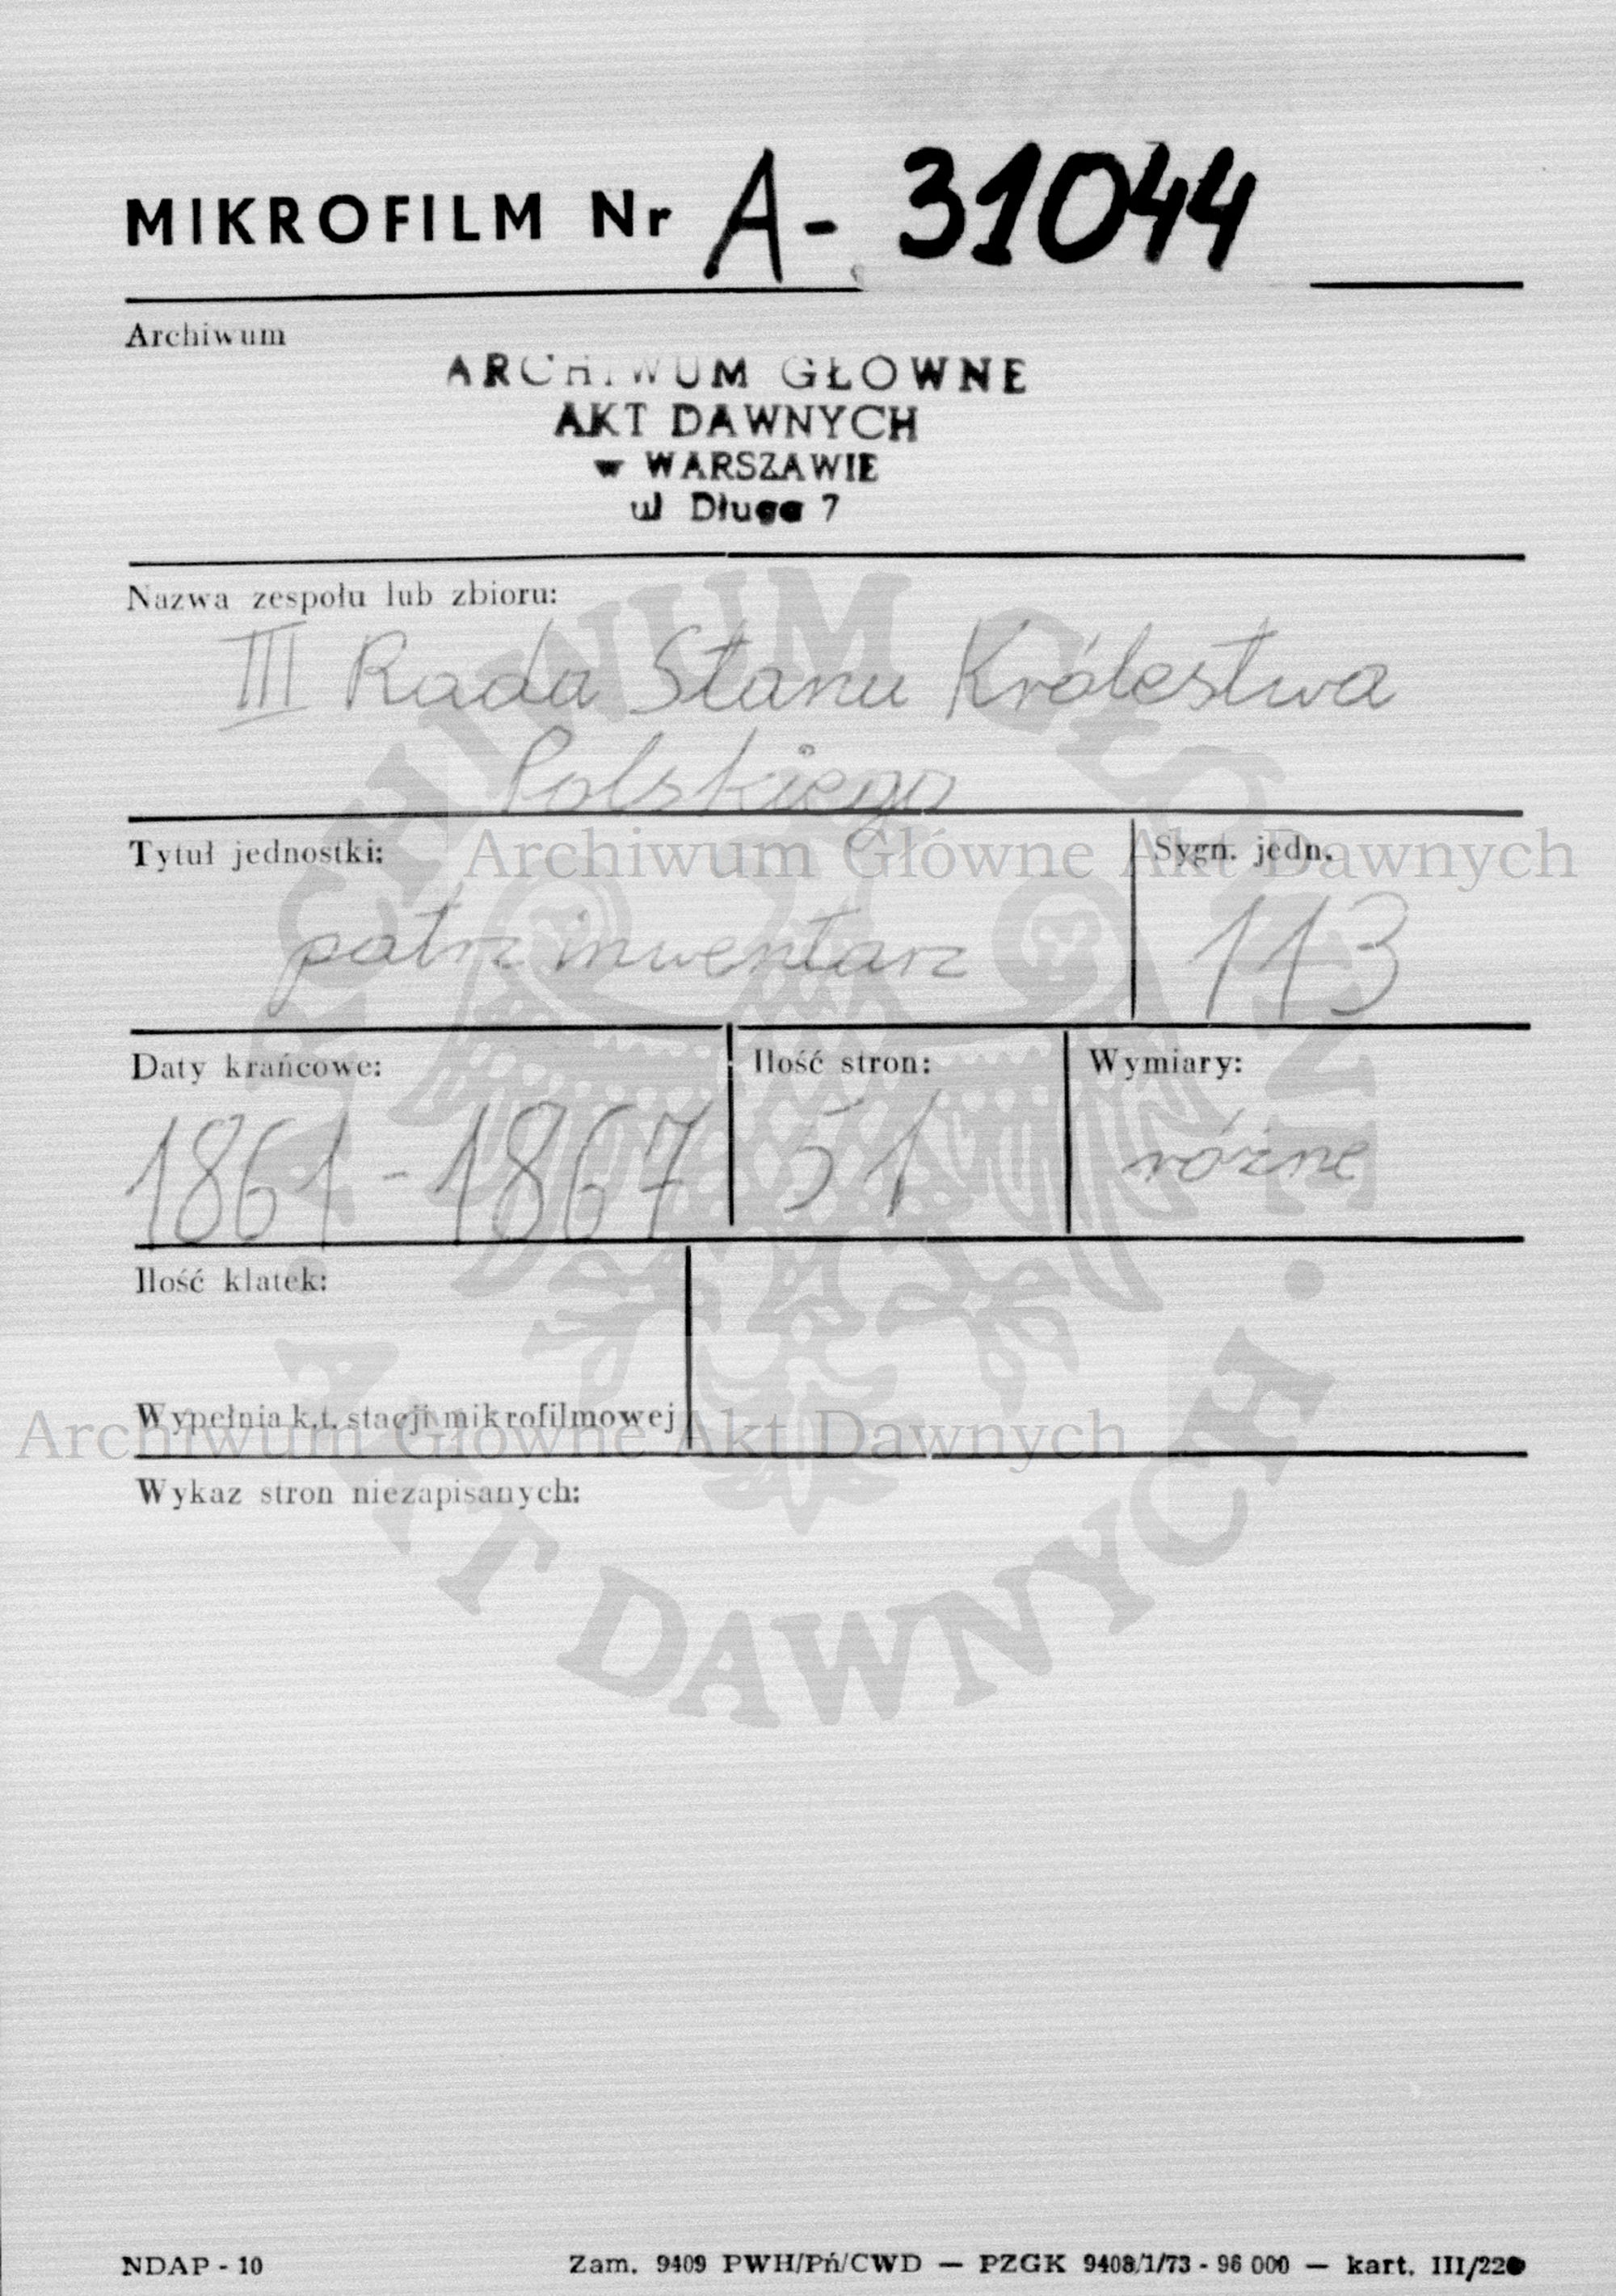 MIKROFILM Nr A- 31044
Archiwum
ARCHIWUM GŁOWNE
AKT DAWNYCH
w WARSZAWIE
ul Długa 7
Nazwa zespołu lub zbioru:
III Rada Stanu Królestwa
Polskiego
Tytuł jednostki:
Sygn. jedn.
Archiwum Główne Akt Dawnych
patrz inwentarz
113
Daty krańcowe:
Ilość stron:
Wymiary:
1861-1867
51
różne
Ilość klatek:
Wypełnia k.t. stacji mikrofilmowej
Archiwum Główne Akt Dawnych
Wykaz stron niezapisanych:
ARCHIWUM GŁÓWNE
AKT DAWNYCH
NDAP - 10
Zam. 9409 PWH/Pń/CWD — PZGK 9408/1/73 - 96 000 — kart. III/22